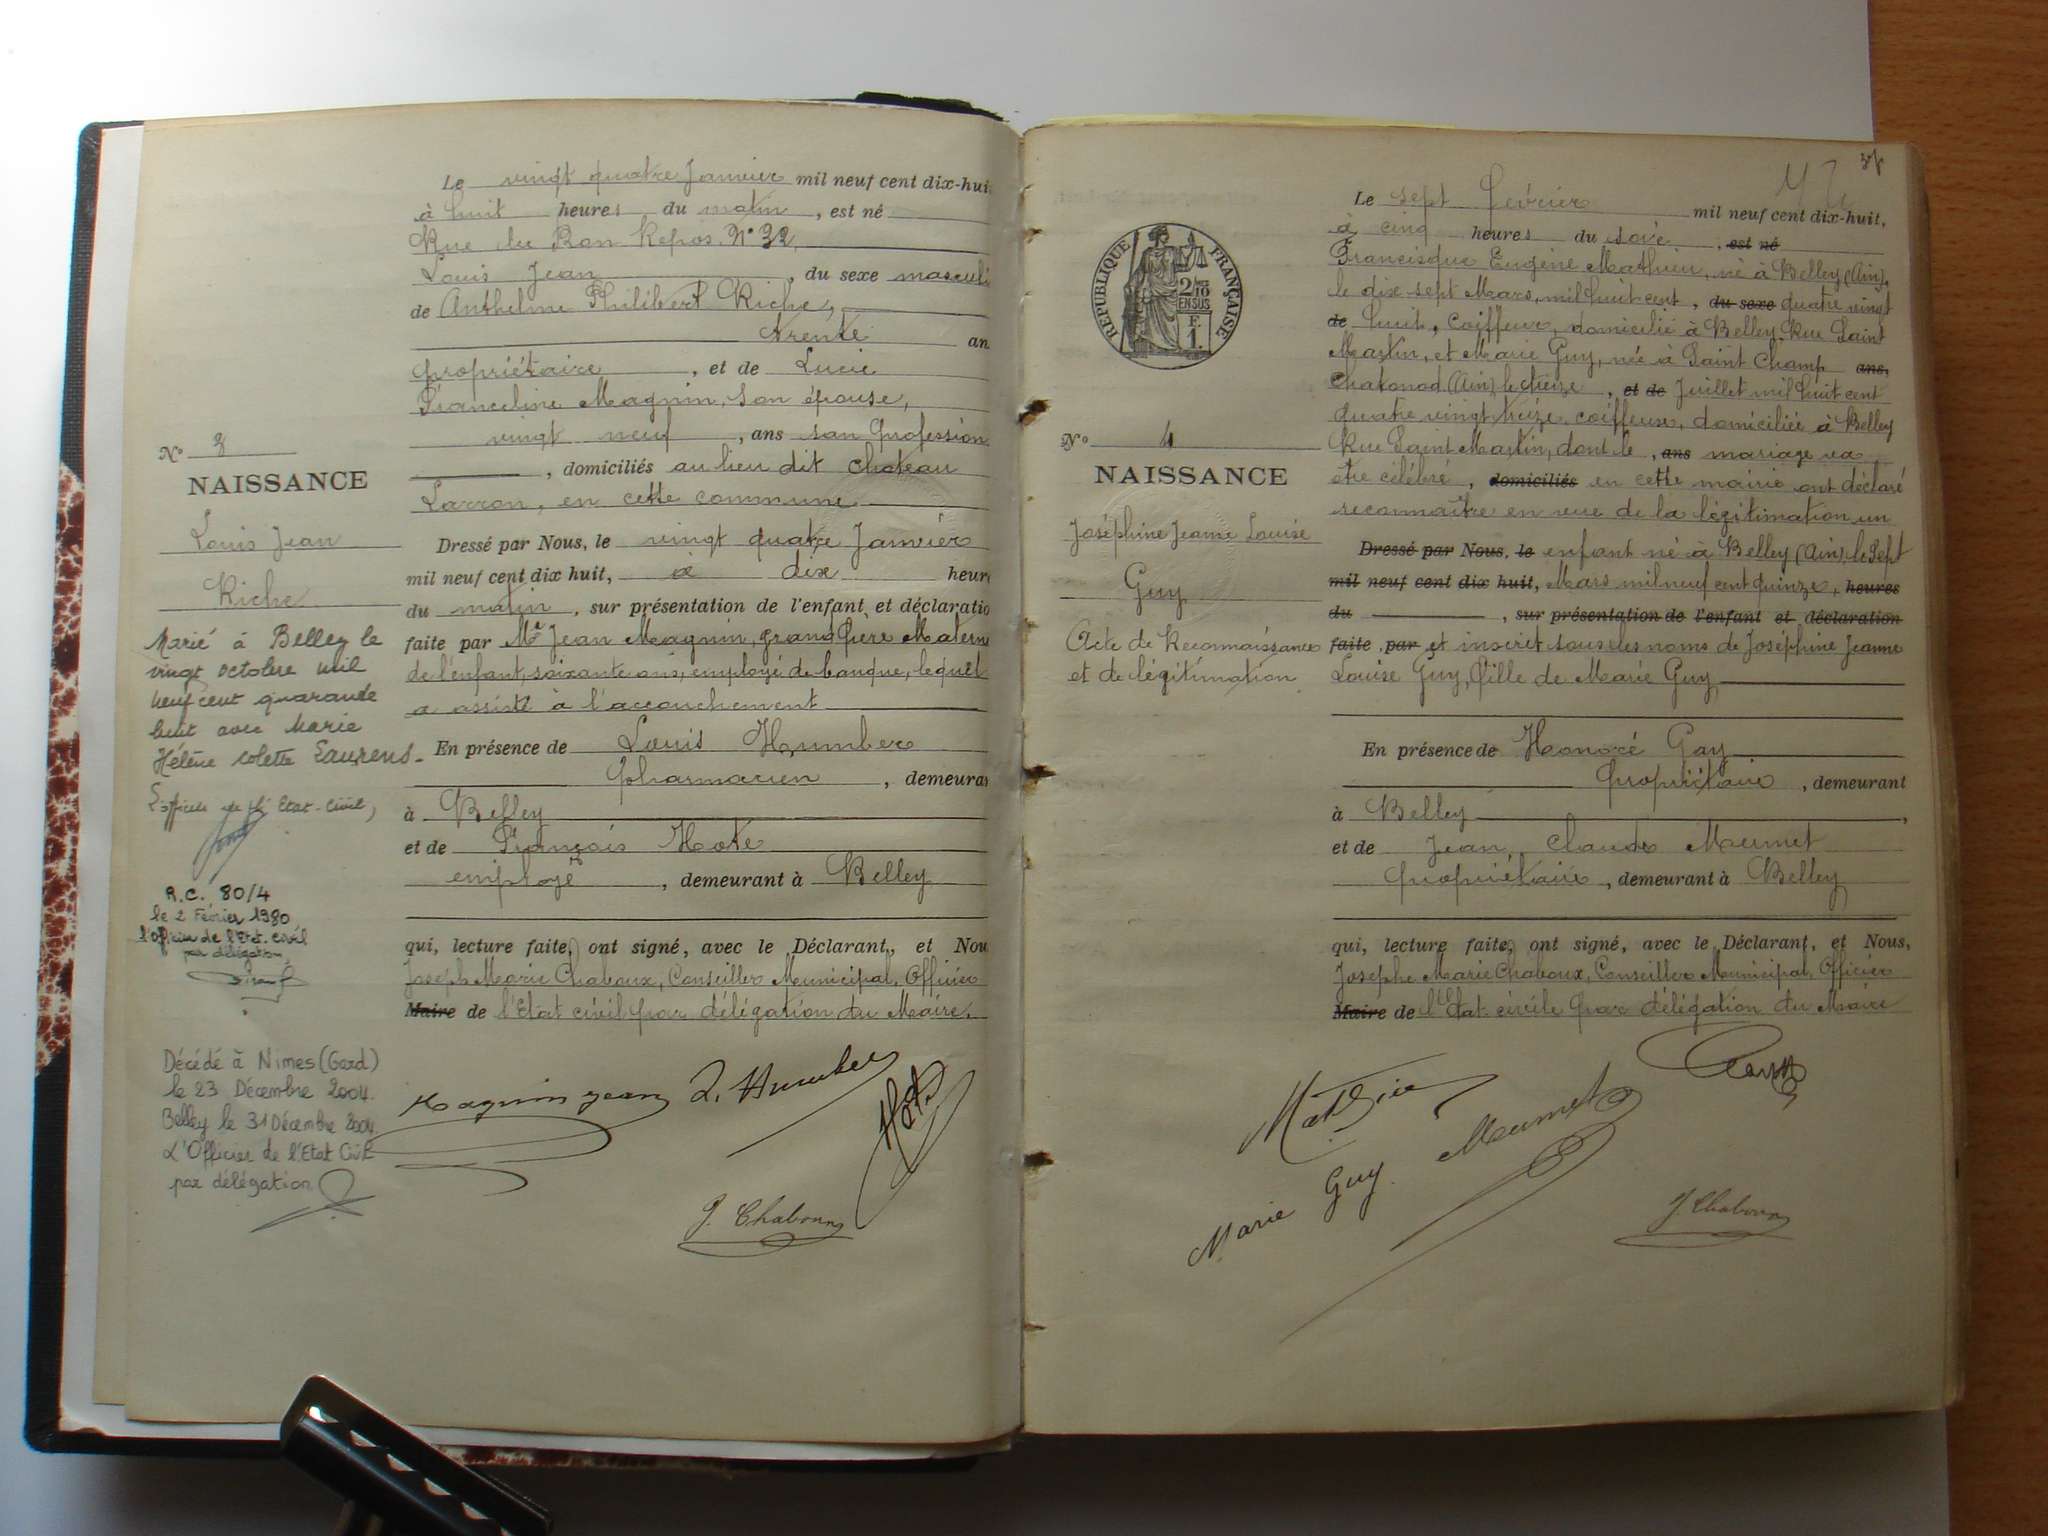 Le vingt quatre Janvier mil neuf cent dix-hui
à huit heures du matin, est né
Rue du Bon Repos N° 32
Louis Jean, du sexe masculi
de Anthelme Philibert Riche,
trente an
propriétaire, et de Lucie
Franceline Magnin, son épouse,
vingt neuf, ans san profession
, domiciliés au lieu dit chateau
Larron, en cette commune
N° 3
NAISSANCE
Louis Jean
Riche
Dressé par Nous, le vingt quatre Janvier
mil neuf cent dix huit, à dix heur
du matin, sur présentation de l'enfant et déclaratio
faite par Mr Jean Magnin, grand père Matern
de l'enfant, soixante ans, employé de banque, lequel
a assisté à l'accouchement
En présence de Louis Humber
pharmacien, demeuran
à Belley
et de François Hote
employé, demeurant à Belley
qui, lecture faite, ont signé, avec le Déclarant, et Nou
Joseph Marie Chaboux, Conseiller Municipal, Officier
Maire de l'Etat civil par délégation du Maire.
Marié à Belley le
vingt octobre mil
neuf cent quarante
huit avec Marie
Hélène Colette Laurens.
L'officier de l'Etat-Civil,
R.C. 80/4
le 2 Février 1980
l'officier de l'Etat-civil
par délégation
Décédé à Nimes (Gard)
le 23 Décembre 2004.
Belley le 31 Décembre 2004
L'Officier de l'Etat Civil
par délégation
Magnin jean L. Humber
Hote
J. Chaboux
38
Le sept Février mil neuf cent dix-huit,
à cinq heures du soir, est né
Francisque Eugène Mathieu, né à Belley (Ain),
le dix sept Mars, mil huit cent, du sexe quatre vingt
de huit, Coiffeur, domicilié à Belley Rue Saint
Martin, et Marie Guy, née à Saint Champ ans,
Chatonod (Ain) le treize, et de Juillet mil huit cent
quatre vingt treize, coiffeuse, domiciliée à Belley
Rue Saint Martin, dont le, ans mariage va
être célébré, domiciliés en cette mairie ont déclaré
reconnaître en vue de la légitimation un
RÉPUBLIQUE FRANÇAISE
2/10 EN SUS
F. 1.
N° 4
NAISSANCE
Joséphine Jeanne Louise
Guy
Acte de Reconnaissance
et de légitimation
Dressé par Nous, le enfant né à Belley (Ain), le Sept
mil neuf cent dix huit, Mars mil neuf cent quinze, heures
du , sur présentation de l'enfant et déclaration
faite par et inscrit sous les noms de Joséphine Jeanne
Louise Guy, fille de Marie Guy
En présence de Honoré Gay
propriétaire, demeurant
à Belley,
et de Jean Claude Meumet
propriétaire, demeurant à Belley
qui, lecture faite, ont signé, avec le Déclarant, et Nous,
Josephe Marie Chaboux, Conseiller Municipal, Officier
Maire de l'Etat-civile par délégation du Maire
Mathieu
Marie Guy Meumet
J. Chaboux